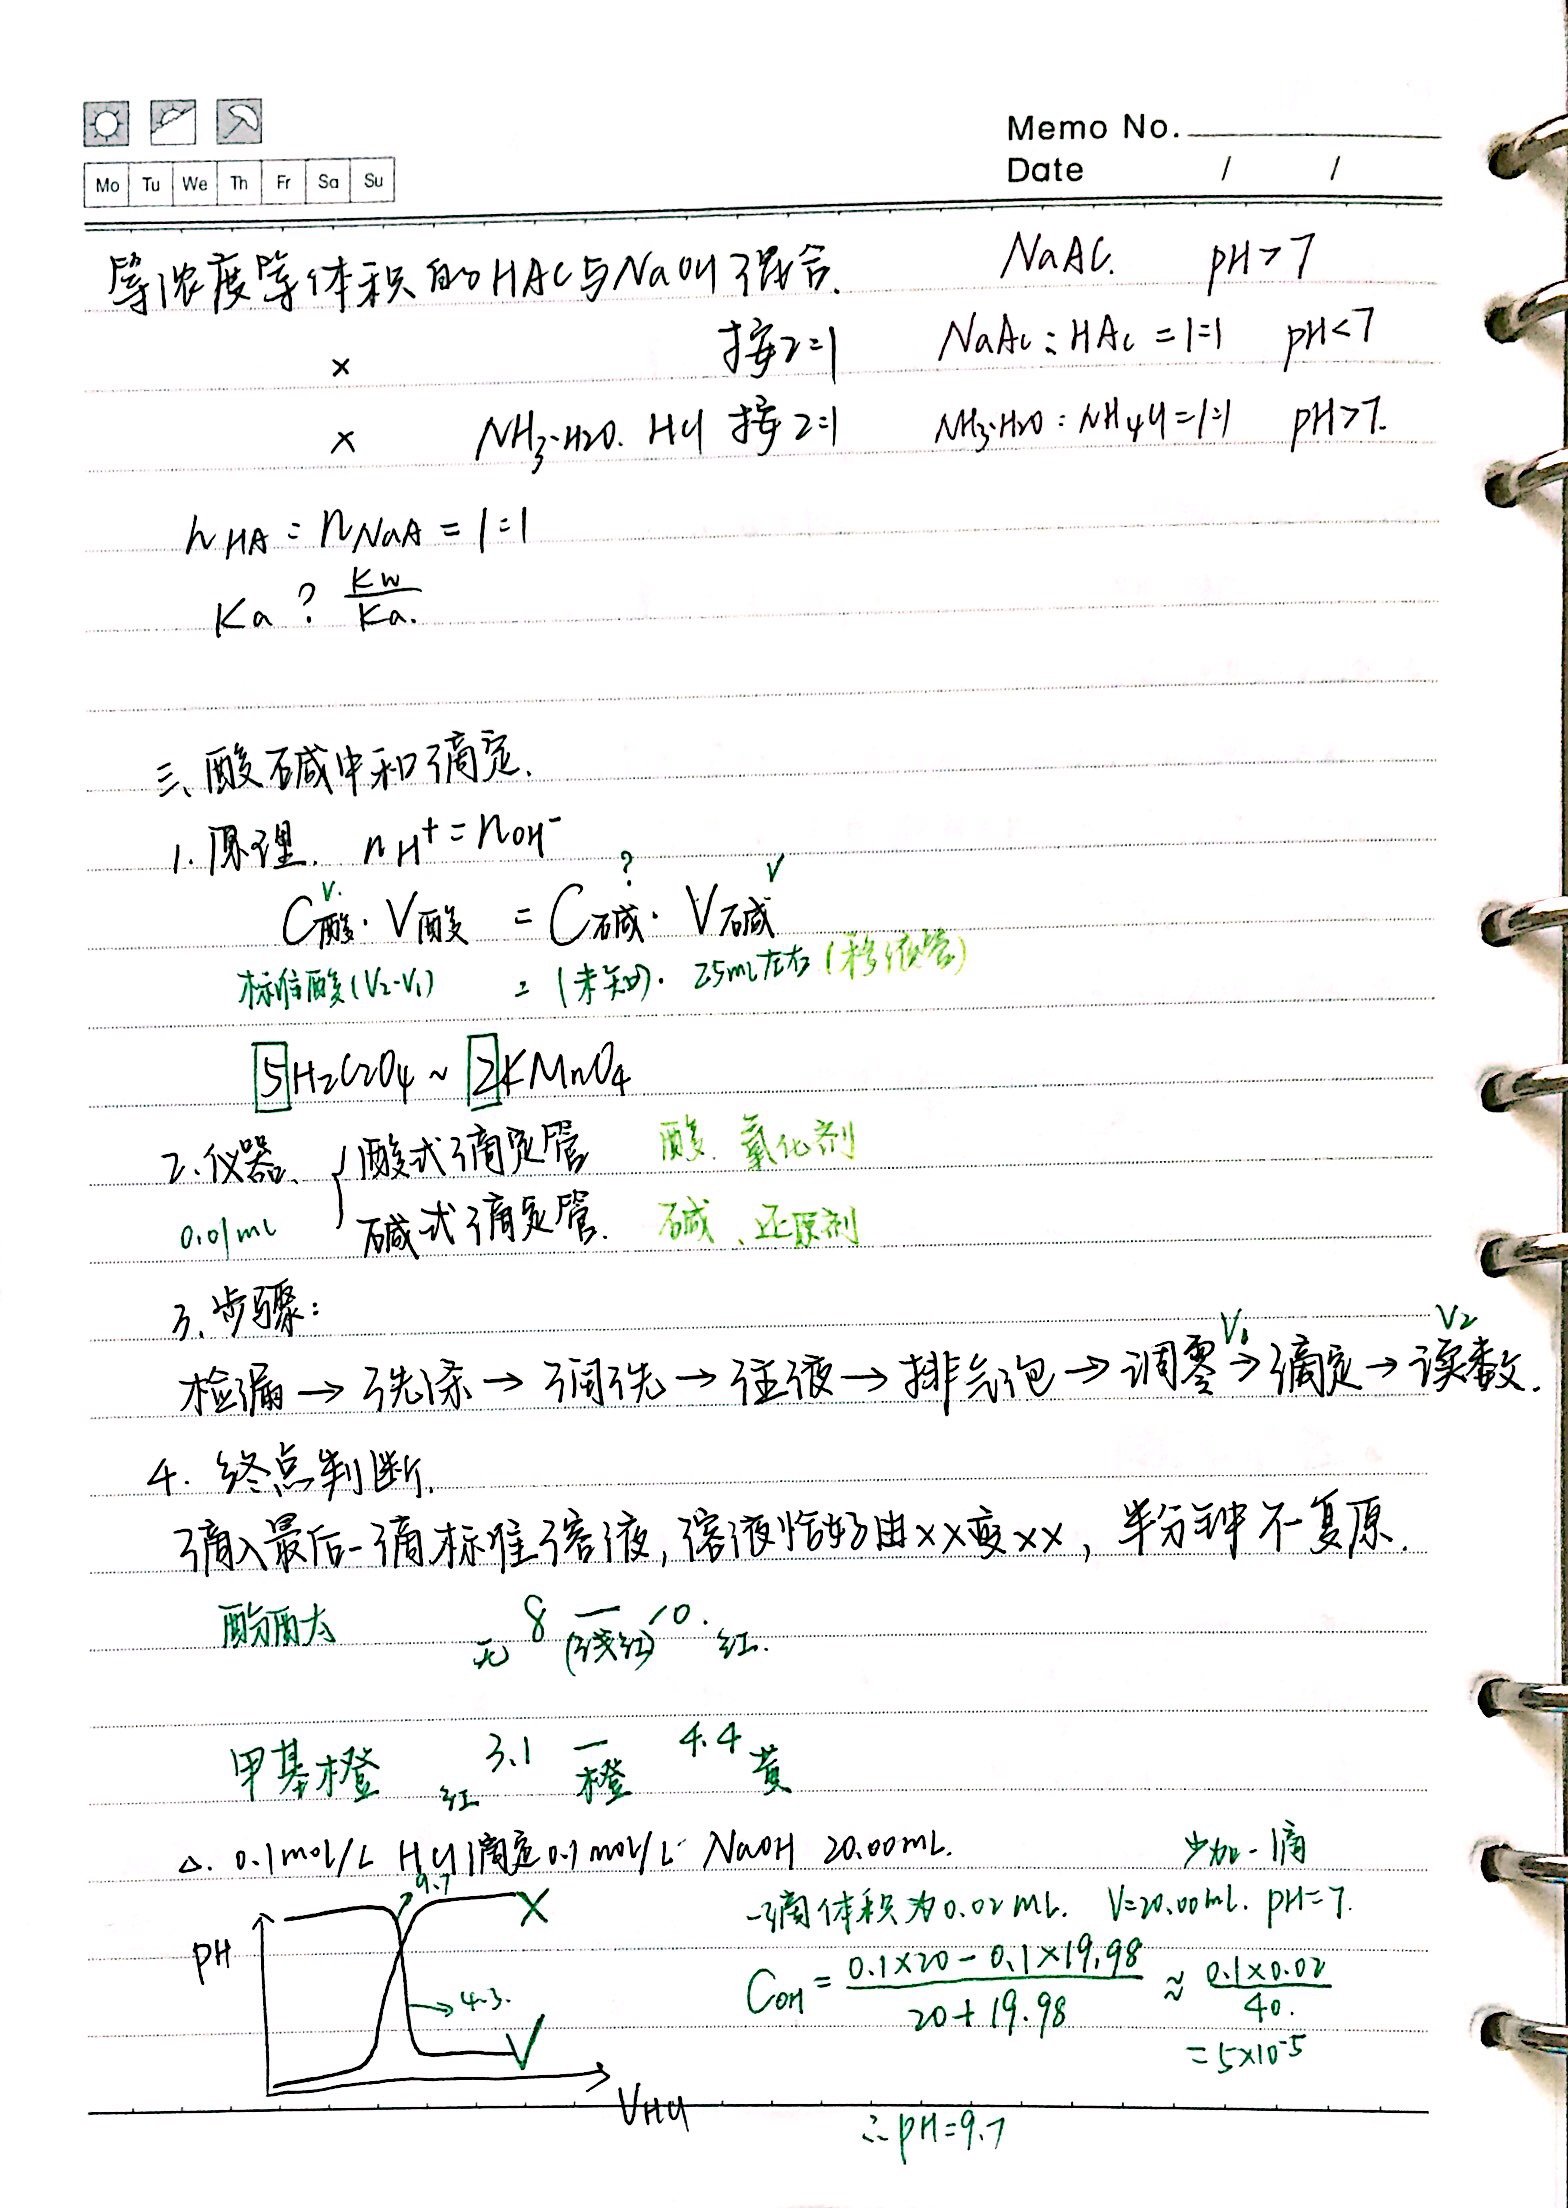 Memo No.
Mo Tu We Th Fr Sa Su
Date / /
等浓度等体积的HAC与NaOH混合. NaAC. pH>7
× 按2:1 NaAc:HAc=1:1 pH<7
× NH₃·H₂O. HCl 按2:1 NH₃·H₂O:NH₄Cl=1:1 pH>7.
n HA : n NaA = 1:1
Ka ? Kw/Ka.
三、酸碱中和滴定.
1. 原理. nH⁺=nOH⁻
V. ? V
C酸·V酸 = C碱·V碱
标准酸(V₂-V₁) = (未知)· 25mL左右(移液管)
5H₂C₂O₄ ~ 2KMnO₄
2.仪器、 { 酸式滴定管 酸、氧化剂
0.01mL 碱式滴定管. 碱、还原剂
3. 步骤:
V₁ V₂
检漏→洗涤→润洗→注液→排气泡→调零→滴定→读数.
4. 终点判断.
滴入最后一滴标准溶液,溶液恰好由××变××,半分钟不复原.
酚酞 无 8 — 10. 红.
(浅红)
甲基橙 红 3.1 — 4.4 黄
橙
△. 0.1mol/L HCl滴定0.1mol/L NaOH 20.00mL. 少加一滴
9.7 × 一滴体积为0.02mL. V=20.00mL. pH=7.
PH COH = (0.1×20-0.1×19.98)/(20+19.98) ≈ (0.1×0.02)/40.
4.3. √ =5×10⁻⁵
VHCl
∴pH=9.7